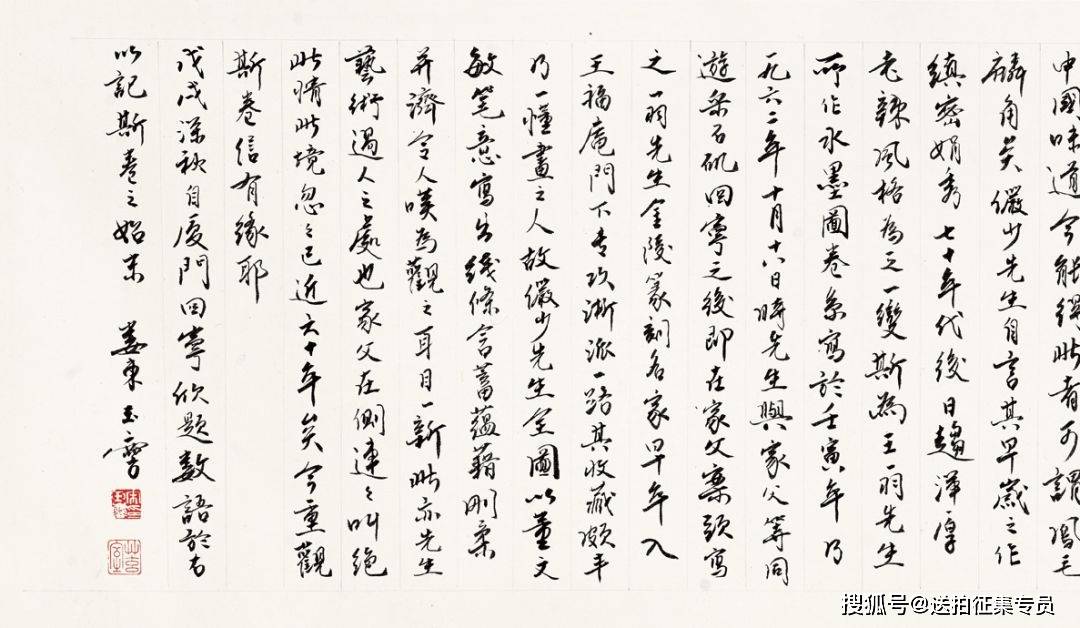 中國味道今能得此者可謂鳳毛
麟角矣儼少先生自言其早歲之作
縝密娟秀七十年代後日趨渾厚
老辣風格為之一變斯為王一羽先生
所作水墨圖卷系寫於壬寅年乃
一九六二年十月十六日時先生與家父等同
遊采石磯回寧之後即在家父案頭寫
之一羽先生金陵篆刻名家早年入
王福庵門下專攻浙派一路其收藏頗丰
乃一懂畫之人故儼少先生全圖以董文
敏筆意寫出線條含蓄蘊藉剛柔
并濟令人嘆為觀之耳目一新此亦先生
藝術過人之處也家父在側連之叫絕
此情此境忽之已近六十年矣今重觀
斯卷信有緣耶
戊戌深秋自廈門回寧欣題數語於右
以記斯卷之始末 婁東玉霄
搜狐号@送拍征集专员